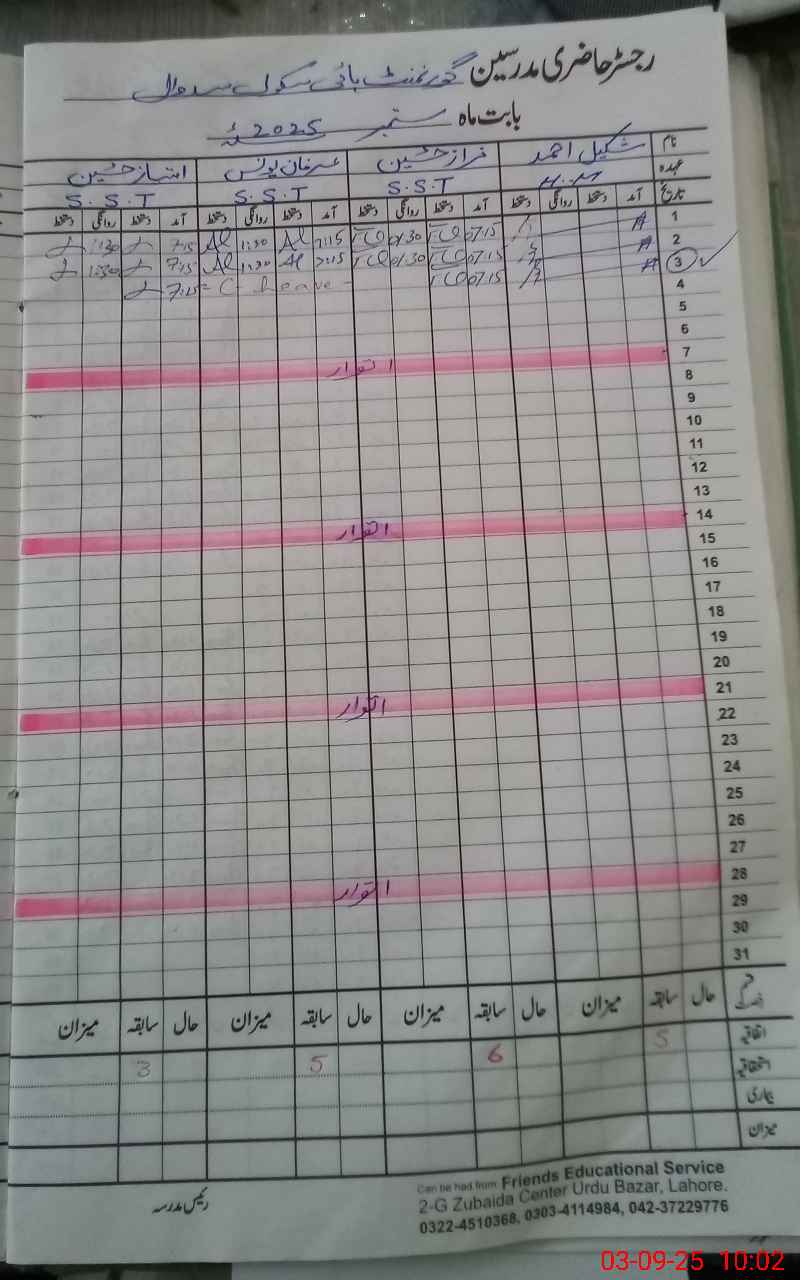 رجسٹر حاضری مدرسین گورنمنٹ ہائی سکول سدوال
بابت ماہ ستمبر 2025ء
نام شکیل احمد فراز حسین عرفان یونس امتیاز حسین
عہدہ H.M S.S.T S.S.T S.S.T
تاریخ آمد دستخط روانگی دستخط آمد دستخط روانگی دستخط آمد دستخط روانگی دستخط آمد دستخط روانگی دستخط
1 A 07:15 01:30 7:15 Al 1:30 Al 7:15 1:30
2 A 07:15 01:30 7:15 Al 1:30 Al 7:15 1:30
3 A 07:15 C. Leave 7:15
4
5
6
7 اتوار
8
9
10
11
12
13
14 اتوار
15
16
17
18
19
20
21 اتوار
22
23
24
25
26
27
28 اتوار
29
30
31
قسم رخصت حال سابقہ میزان حال سابقہ میزان حال سابقہ میزان حال سابقہ میزان
اتفاقیہ 5 6 5 3
استحقاقیہ
بیماری
میزان
رئیس مدرسہ
Can be had from Friends Educational Service
2-G Zubaida Center Urdu Bazar, Lahore.
0322-4510368, 0303-4114984, 042-37229776
03-09-25 10:02